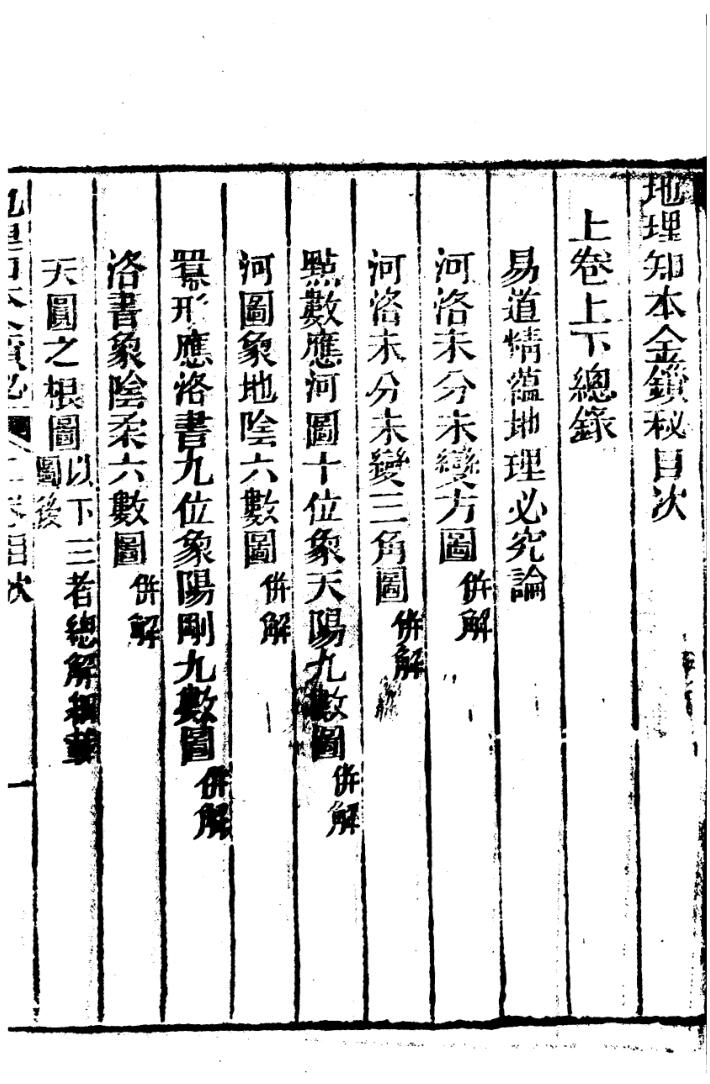 地理知本金鎖秘目次
上卷上下總錄
易道精蘊地理必究論
河洛未分未變方圖 併解
河洛未分未變三角圖 併解
點數應河圖十位象天陽九數圖 併解
河圖象地陰六數圖 併解
羃形應洛書九位象陽剛九數圖 併解
洛書象陰柔六數圖 併解
天圓之根圖 以下三者總解細載圖後
地理知本金鎖秘 上卷目次 一